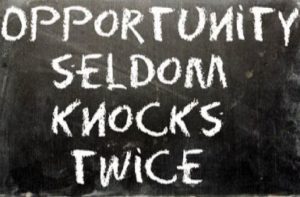 OPPORTUNITY
SELDOM
KNOCKS
TWICE